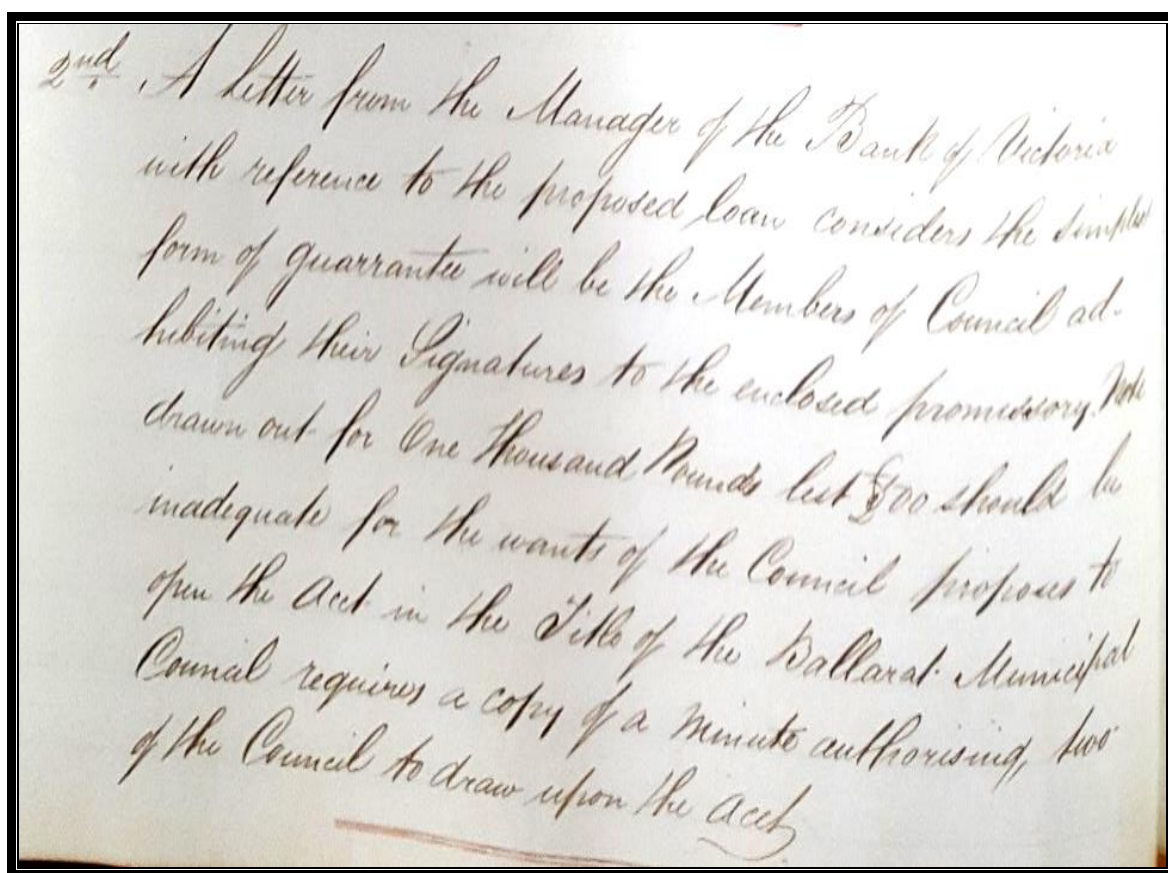 2nd. A Letter from the Manager of the Bank of Victoria
with reference to the proposed loan considers the simplest
form of guarrantee will be the Members of Council ad-
hibiting their Signatures to the enclosed promissory Note
drawn out for One thousand Pounds lest £500 should be
inadequate for the wants of the Council proposes to
open the Acct in the Title of the Ballarat Municipal
Council requires a copy of a minute authorising, two
of the Council to draw upon the Acct